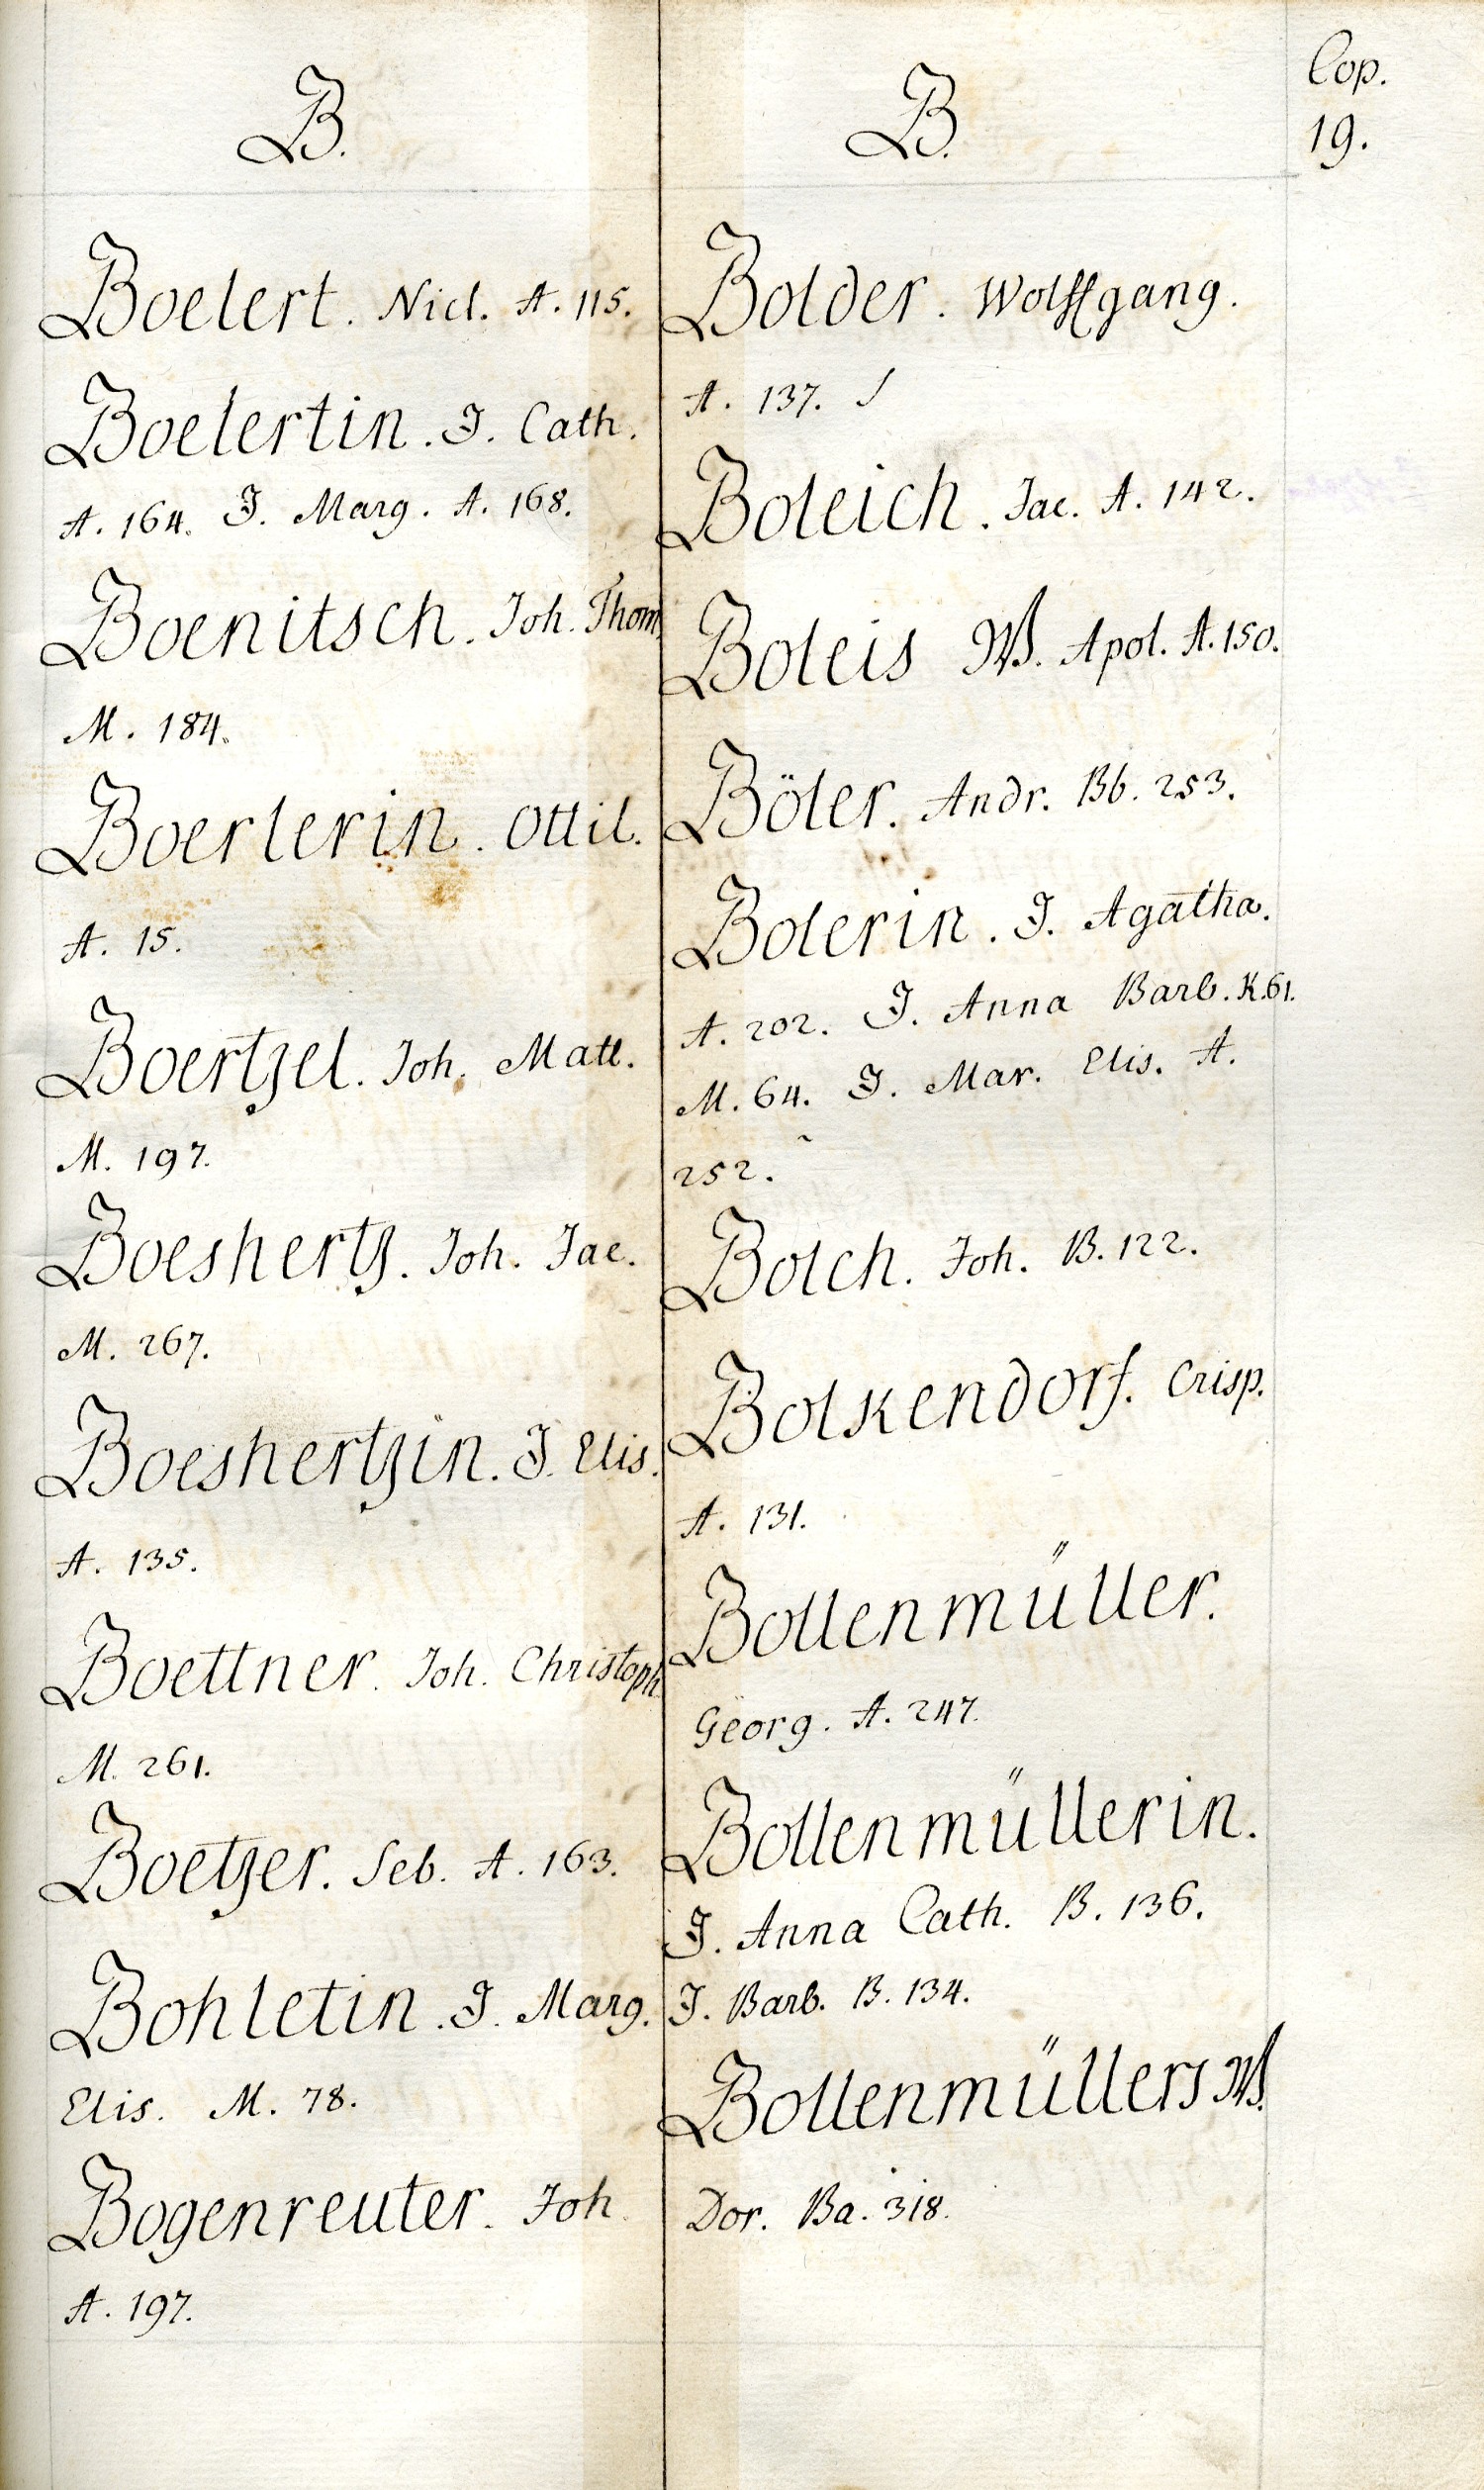 Cop.
19.
B.
Boelert. Nicl. A. 115.
Boelertin. J. Cath.
A. 164. J. Marg. A. 168.
Boenitsch. Joh. Thom.
M. 184.
Boerlerin. Ottil.
A. 15.
Boertzel. Joh. Matt.
M. 197.
Boeshertz. Joh. Jac.
M. 267.
Boeshertzin. J. Elis.
A. 135.
Boettner. Joh. Christoph.
M. 261.
Boetzer. Seb. A. 163.
Bohletin. J. Marg.
Elis. M. 78.
Bogenreuter. Joh.
A. 197.
B.
Bolder. Wolffgang.
A. 137.
Boleich. Jac. A. 142.
Boleis W. Apol. A. 150.
Böler. Andr. Bb. 253.
Bolerin. J. Agatha.
A. 202. J. Anna Barb. K. 61.
M. 64. J. Mar. Elis. A.
252.
Bolch. Joh. B. 122.
Bolkendorf. Crisp.
A. 131.
Bollenmüller.
Georg. A. 247.
Bollenmüllerin.
J. Anna Cath. B. 136.
J. Barb. B. 134.
Bollenmüllers W.
Dor. Ba. 318.